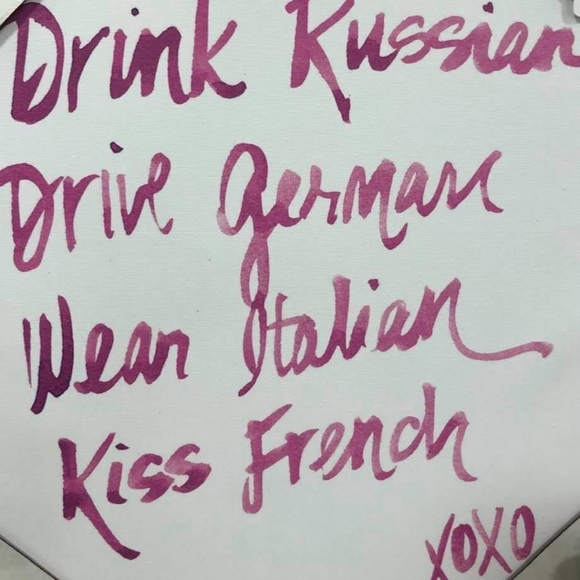 Drink Russian
Drive German
Wear Italian
Kiss French
XOXO